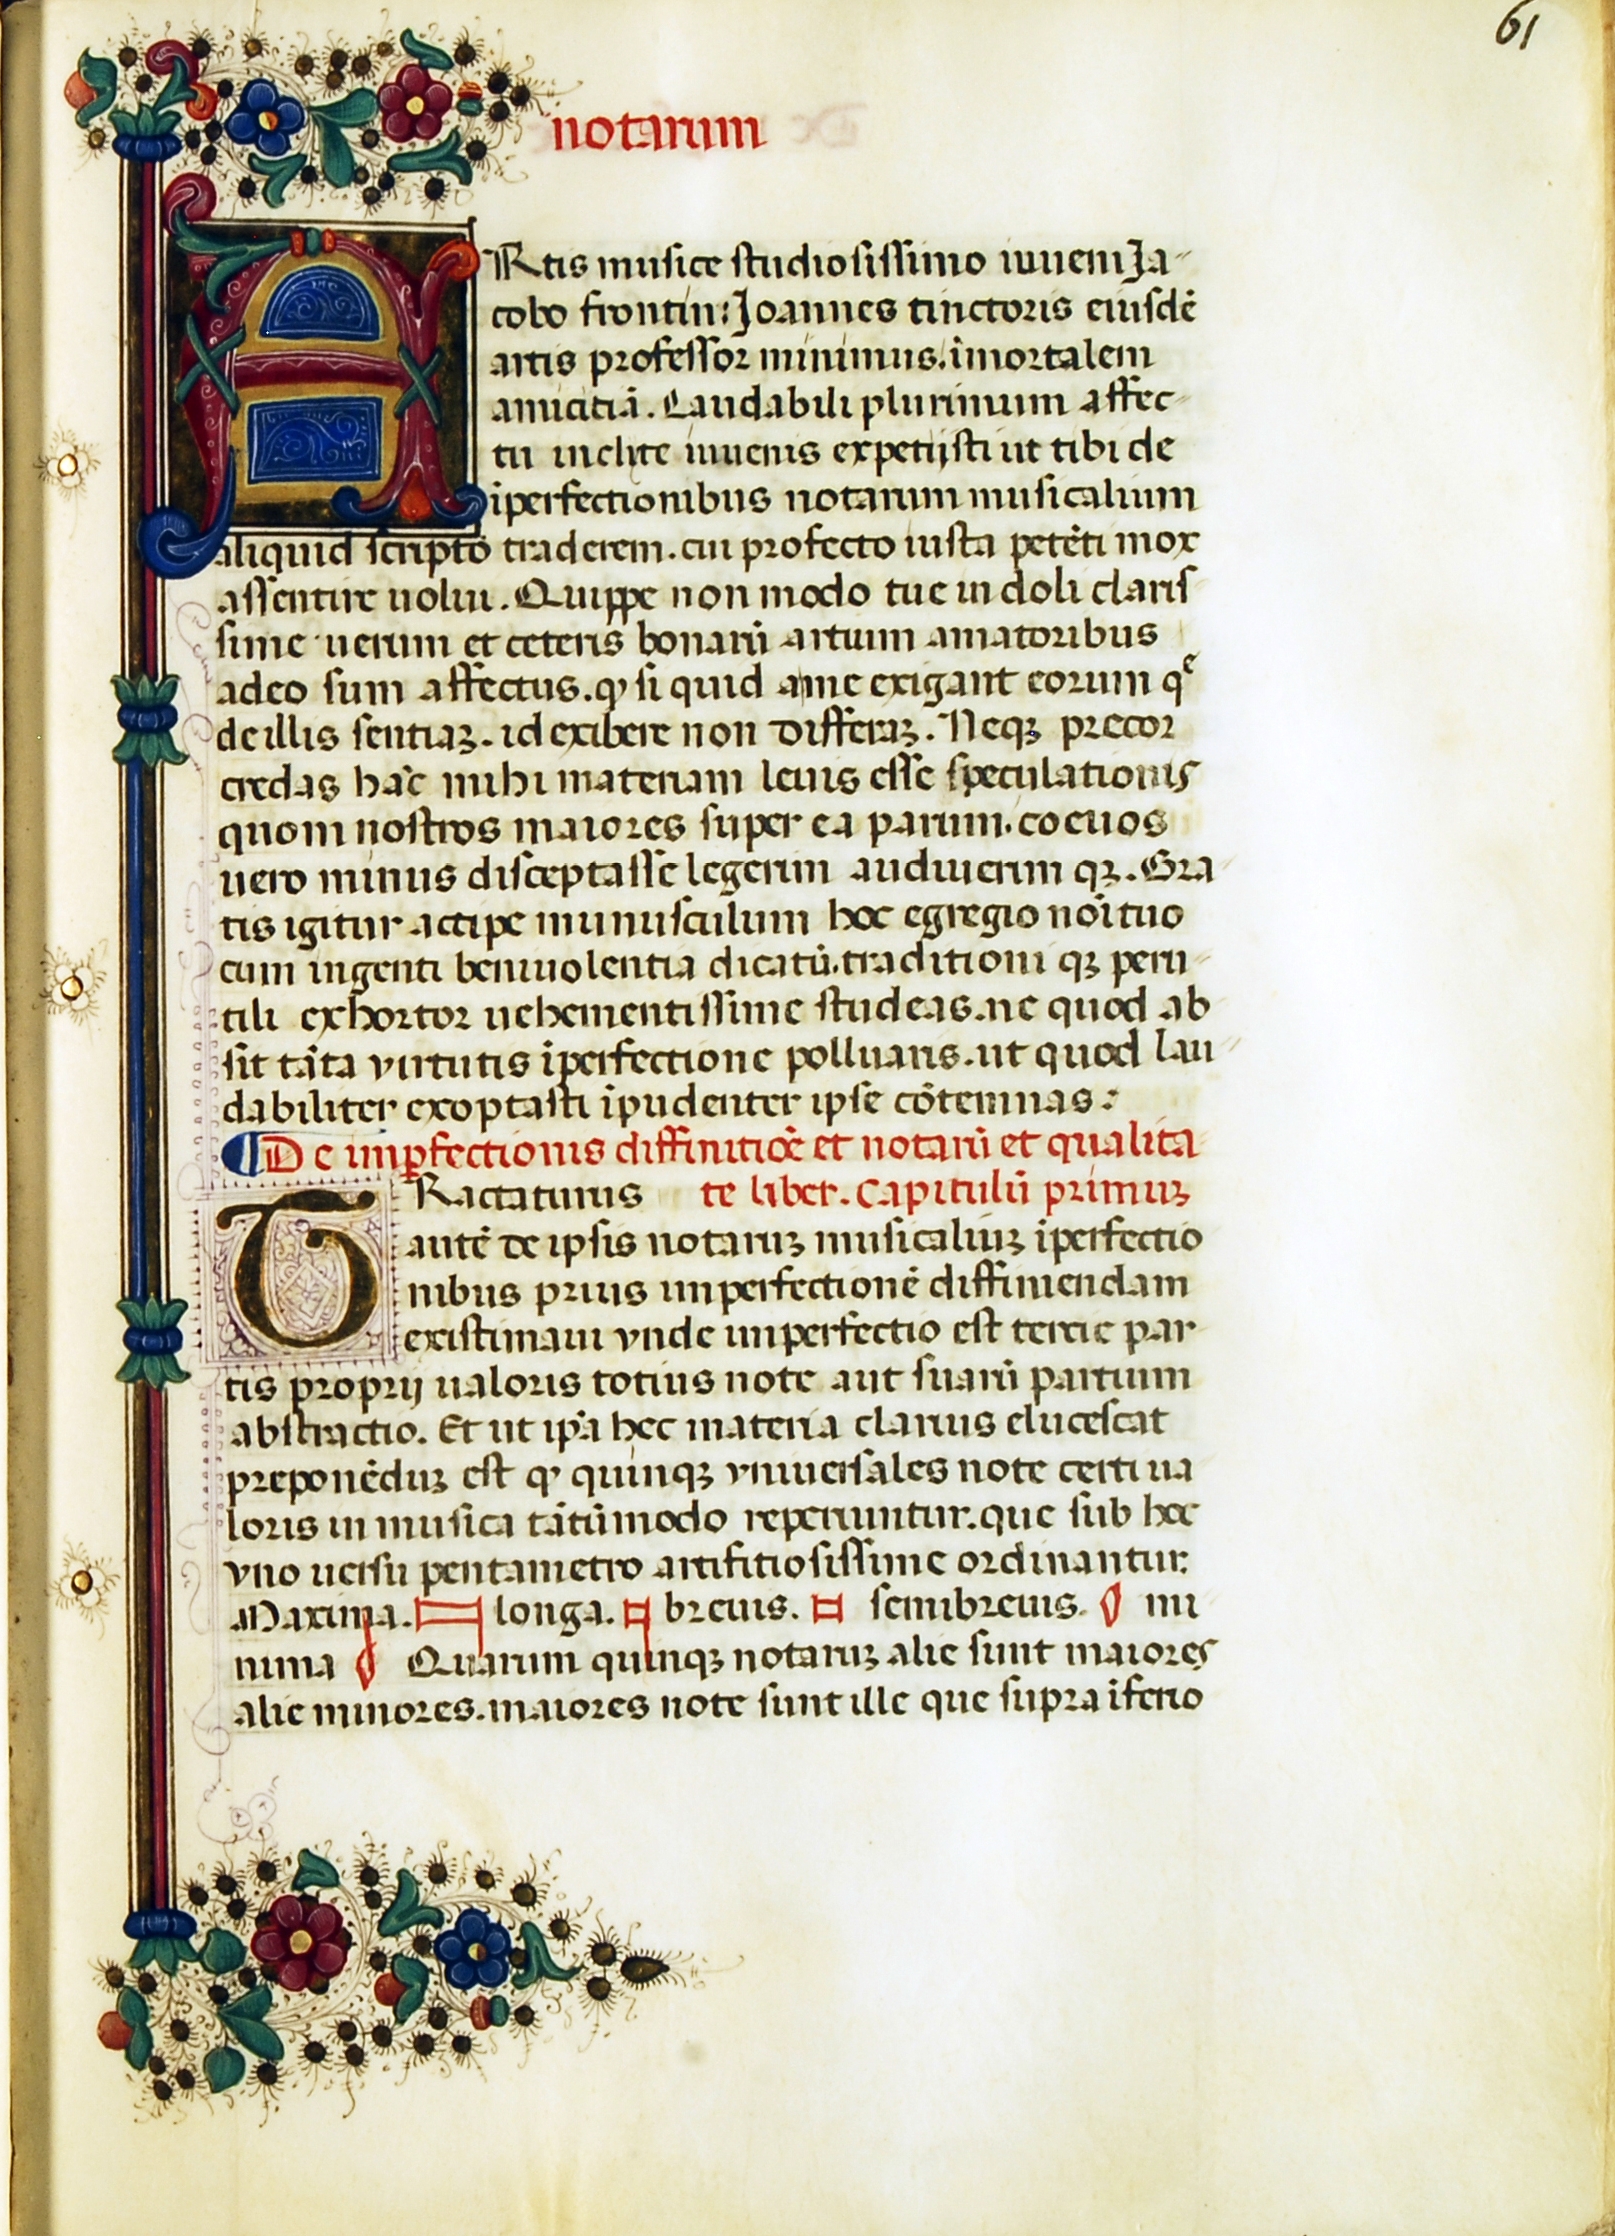 61
notarum
ARtis musice studiosissimo iuueni Ja-
cobo frontin: Joannes tinctoris eiusdē
artis professor minimus. īmortalem
amicitiā. Laudabili plurimum affec-
tu inclite iuuenis expetijsti ut tibi de
īperfectionibus notarum musicalium
aliquid scripto traderem. cui profecto iusta petēti mox
assentire uolui. Quippe non modo tue indoli claris
sime uerum et ceteris bonarū artium amatoribus
adeo sum affectus. ꝙ si quid a me exigant eorum qͤ
de illis sentiaꝫ. id exibere non differaꝫ. Neqꝫ precor
credas hāc mihi materiam leuis esse speculationis
quom nostros maiores super ea parum. coeuos
uero minus disceptasse legerim audiuerim qꝫ. Gra-
tis igitur accipe munusculum hoc egregio noī tuo
cum ingenti beniuolentia dicatū. traditioni qꝫ peru-
tili exhortor uehementissime studeas. ne quod ab
sit tāta virtutis īperfectione polluaris. ut quod lau-
dabiliter exoptasti īpudenter ipse cōtemnas:
¶De imꝑfectionis diffinitiōe et notarū et qualita
TRactaturus te liber. Capitulū primuꝫ
autē de ipsis notaruꝫ musicaliuꝫ īperfectio
nibus prius imperfectionē diffiniendam
existimaui vnde imperfectio est tercie par-
tis proprij ualoris totius note aut suarū partium
abstractio. Et ut ip̄a hec materia clarius elucescat
preponēduꝫ est ꝙ quinqꝫ vniuersales note certi ua
loris in musica tātūmodo reperiuntur. que sub hoc
vno uersu pentametro artifitiosissime ordinantur.
Maxima. longa. breuis. semibreuis. mi
nima Quarum quinqꝫ notaruꝫ alie sunt maiores
alie minores. maiores note sunt ille que supra īferio